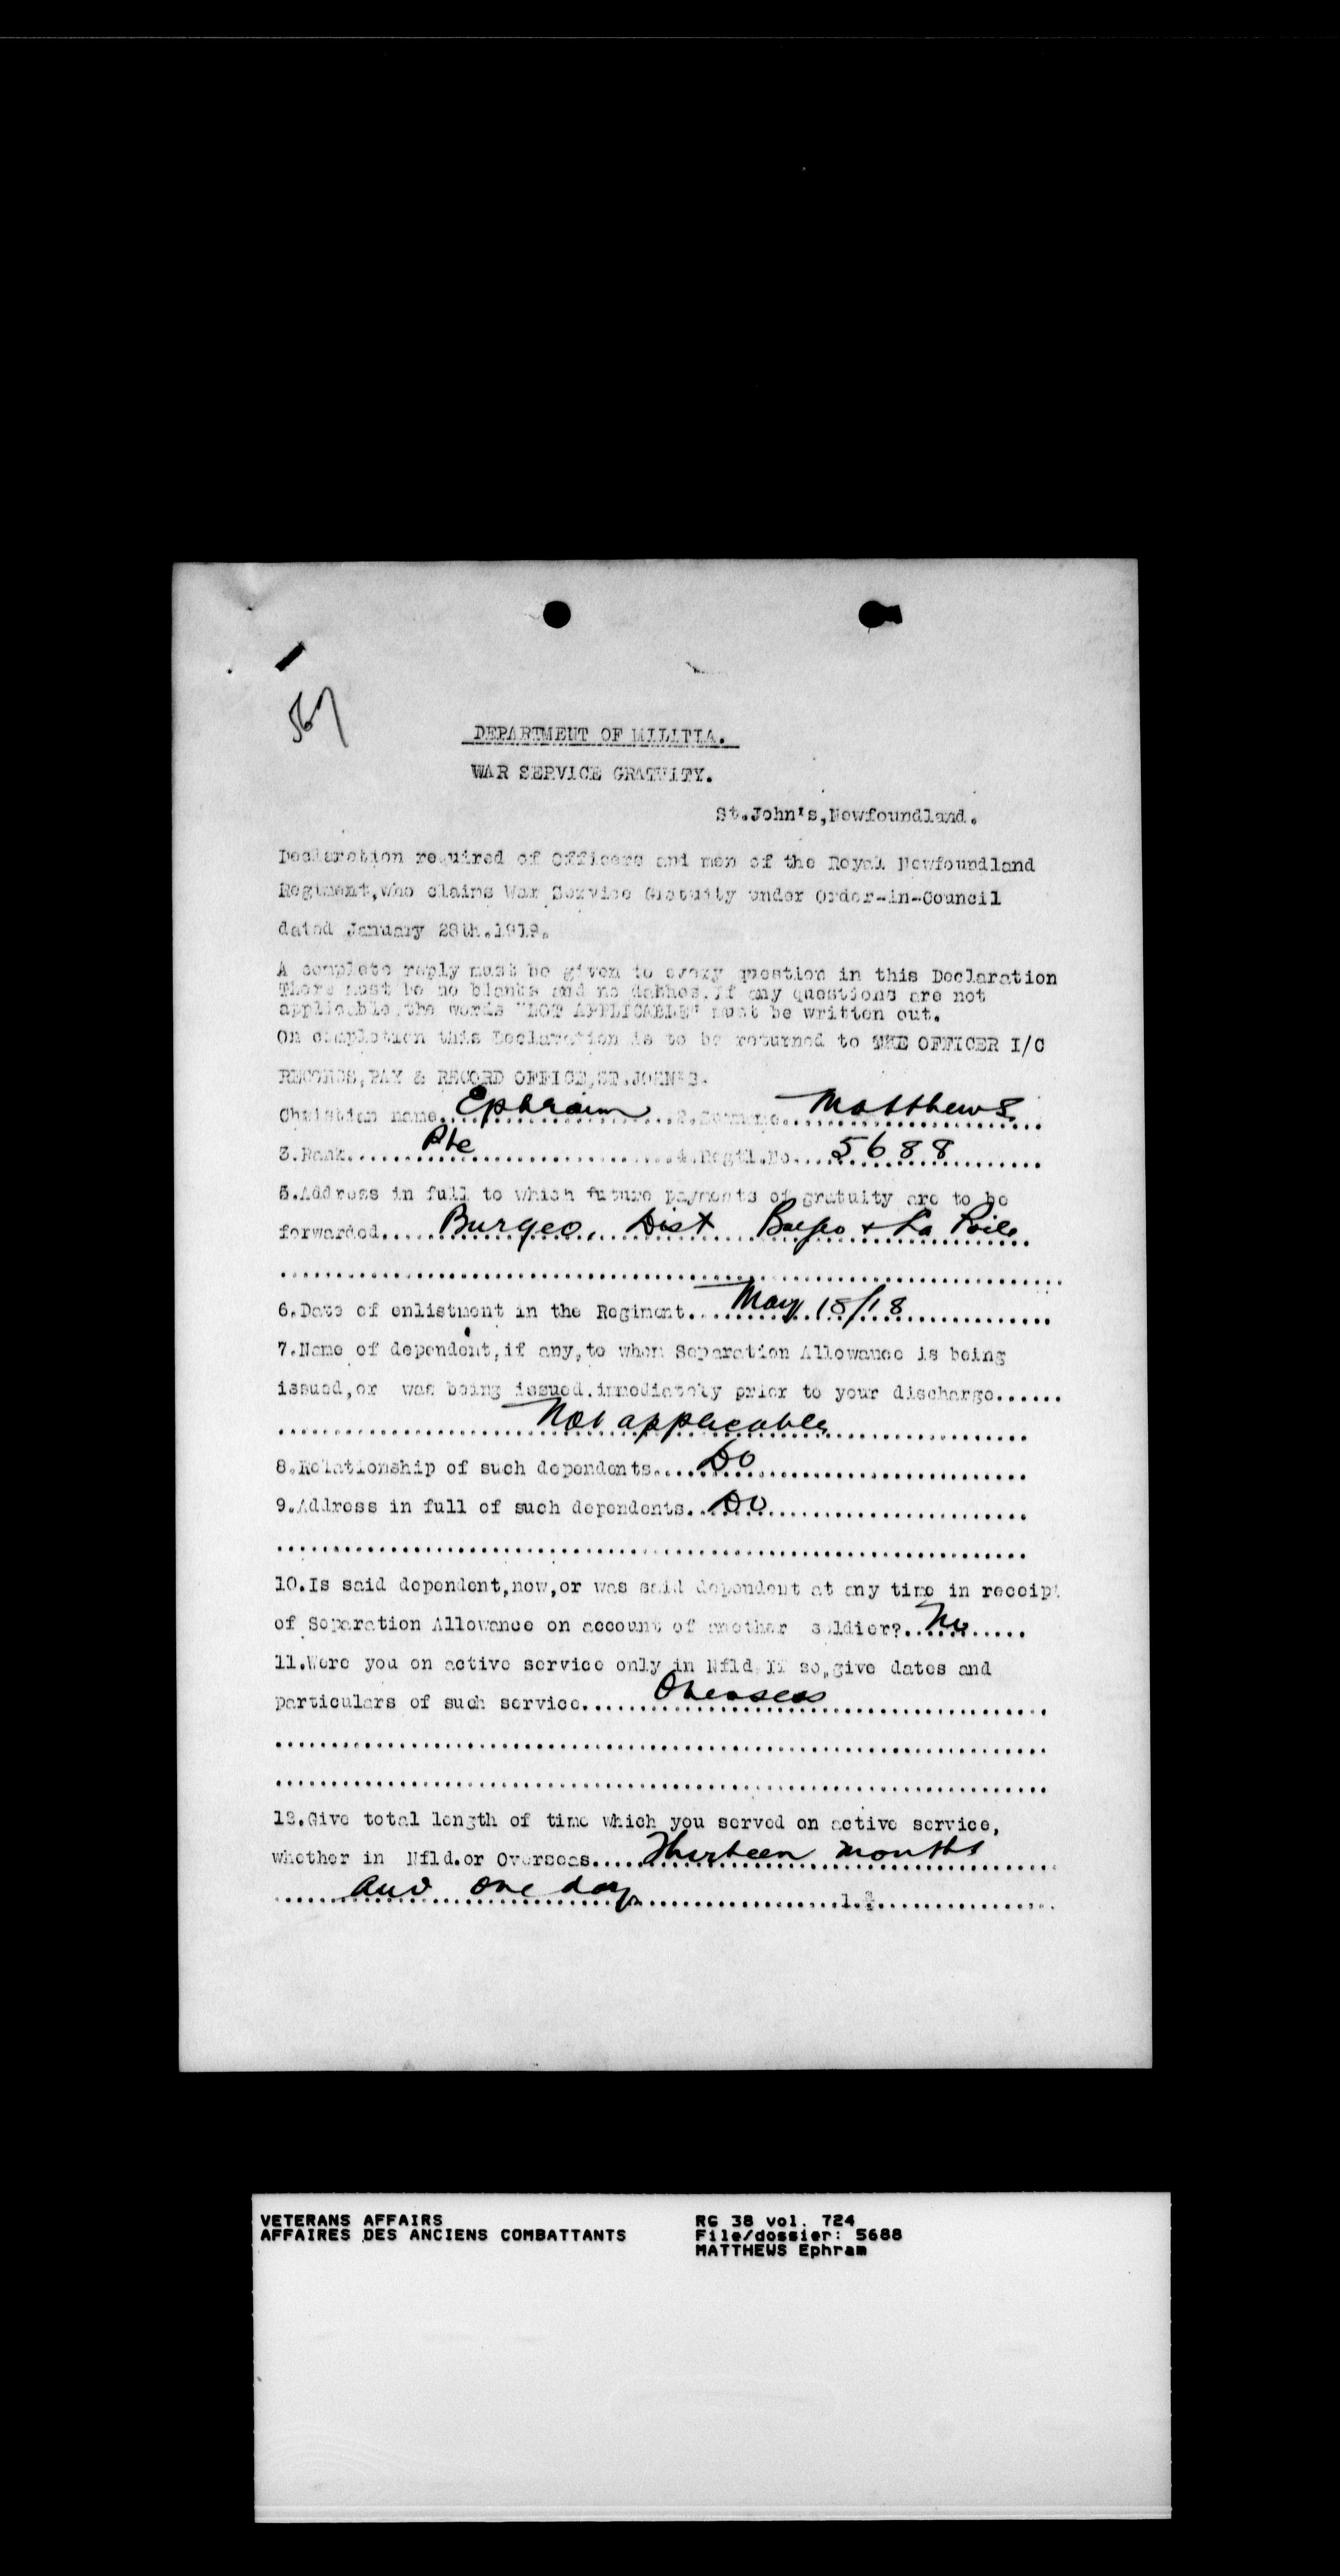 567
DEPARTMENT OF MILITIA.
WAR SERVICE GRATUITY.
St.John's,Newfoundland.
Declaration required of Officers and men of the Royal Newfoundland
Regiment,who claims War Service Gratuity under Order-in-Council
dated January 28th.1919.
A complete reply must be given to every question in this Declaration
There must be no blanks and no dashes.If any questions are not
applicable,the words "NOT APPLICABLE" must be written out.
On completion this Declaration is to be returned to THE OFFICER I/C
RECORDS,PAY & RECORD OFFICE,ST.JOHN'S.
Christian name.Ephraim.....2.Surname..Matthews
3.Rank....Pte.....4.Regtl.No....5688
5.Address in full to which future payments of gratuity are to be
forwarded....Burgeo, Dist Burgeo & La Poile
6.Date of enlistment in the Regiment...May 18/18
7.Name of dependent,if any,to whom Separation Allowance is being
issued,or was being issued.immediately prior to your discharge......
Not applicable
8.Relationship of such dependents....Do
9.Address in full of such dependents..Do
10.Is said dependent,now,or was said dependent at any time in receipt
of Separation Allowance on account of another soldier?..No......
11.Were you on active service only in Nfld.If so,give dates and
particulars of such service.....Overseas
12.Give total length of time which you served on active service,
whether in Nfld.or Overseas....Thirteen months
and one day
VETERANS AFFAIRS RG 38 vol. 724
AFFAIRES DES ANCIENS COMBATTANTS File/dossier: 5688
MATTHEWS Ephram